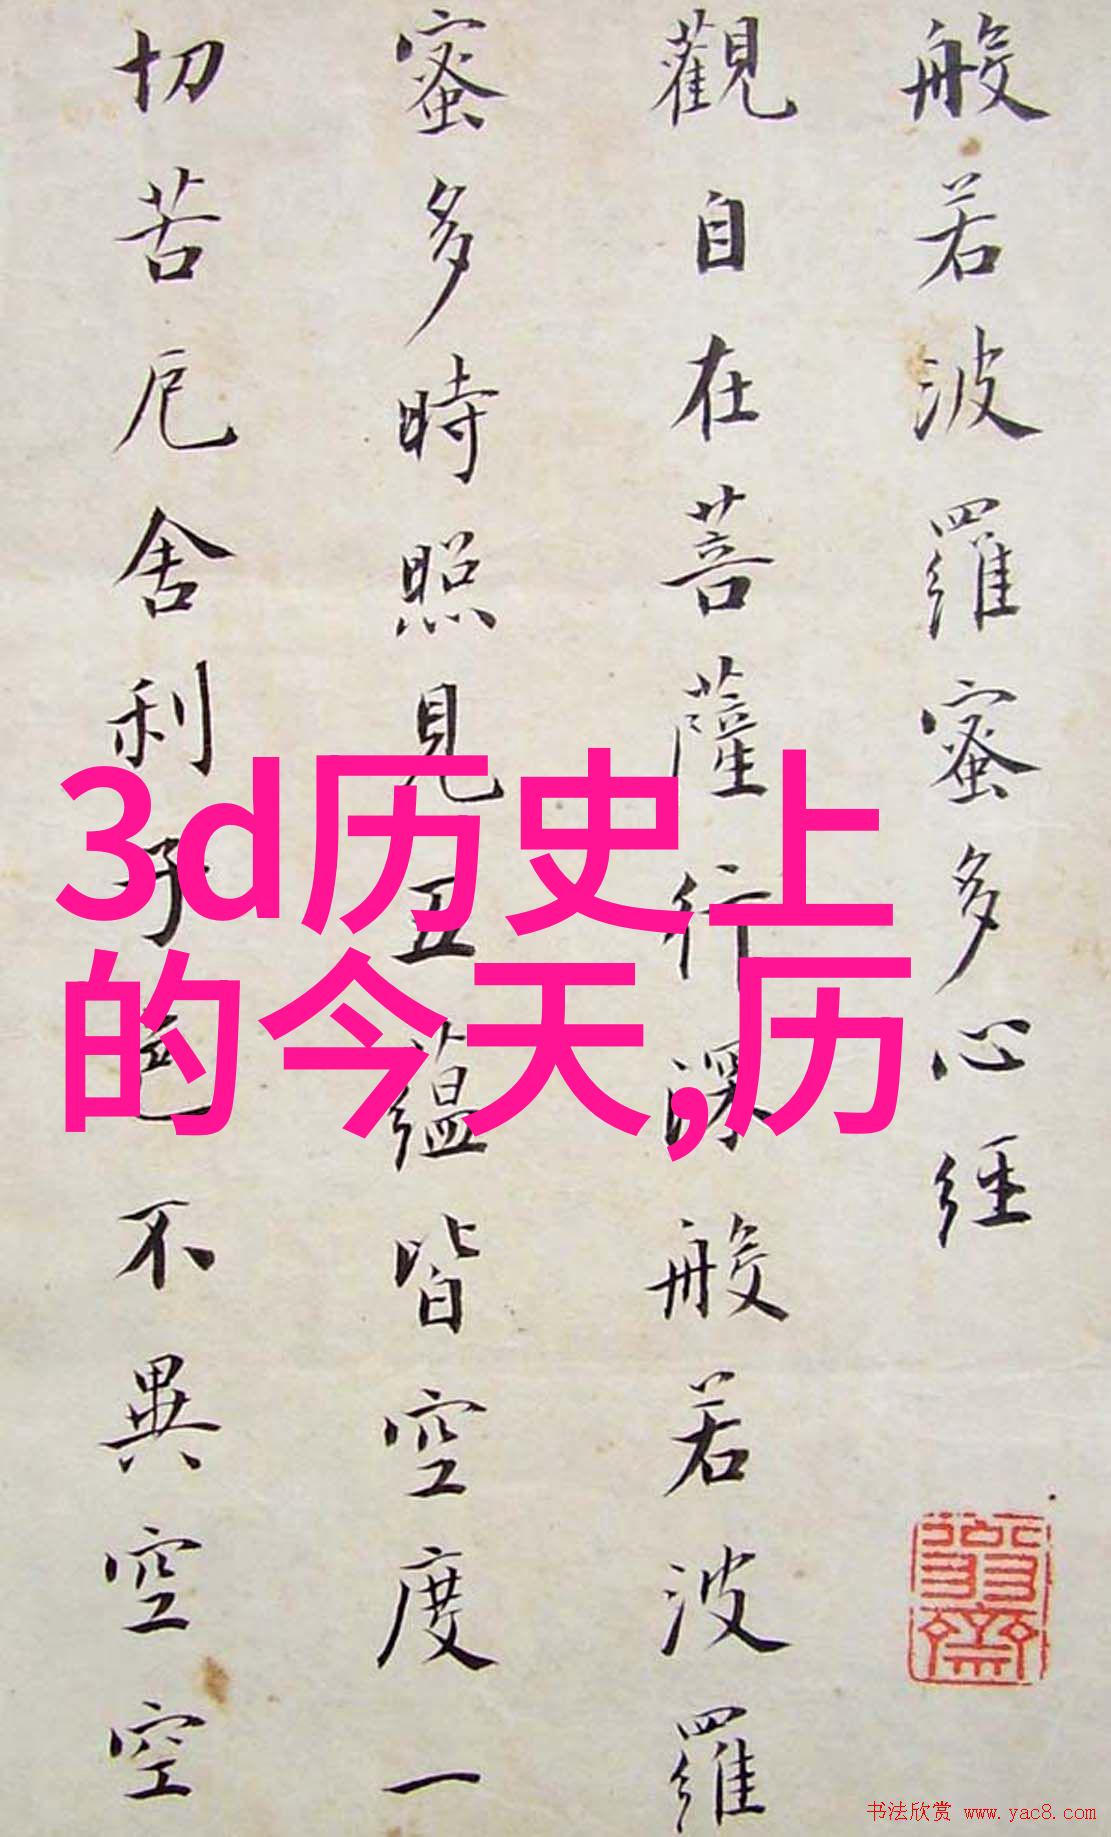 般若波羅蜜多心經
觀自在菩薩行深般若波羅
蜜多時照見五蘊皆空度一
切苦厄舍利子色不異空空
3d历史上
的今天,历
书法欣赏 www.yac8.com